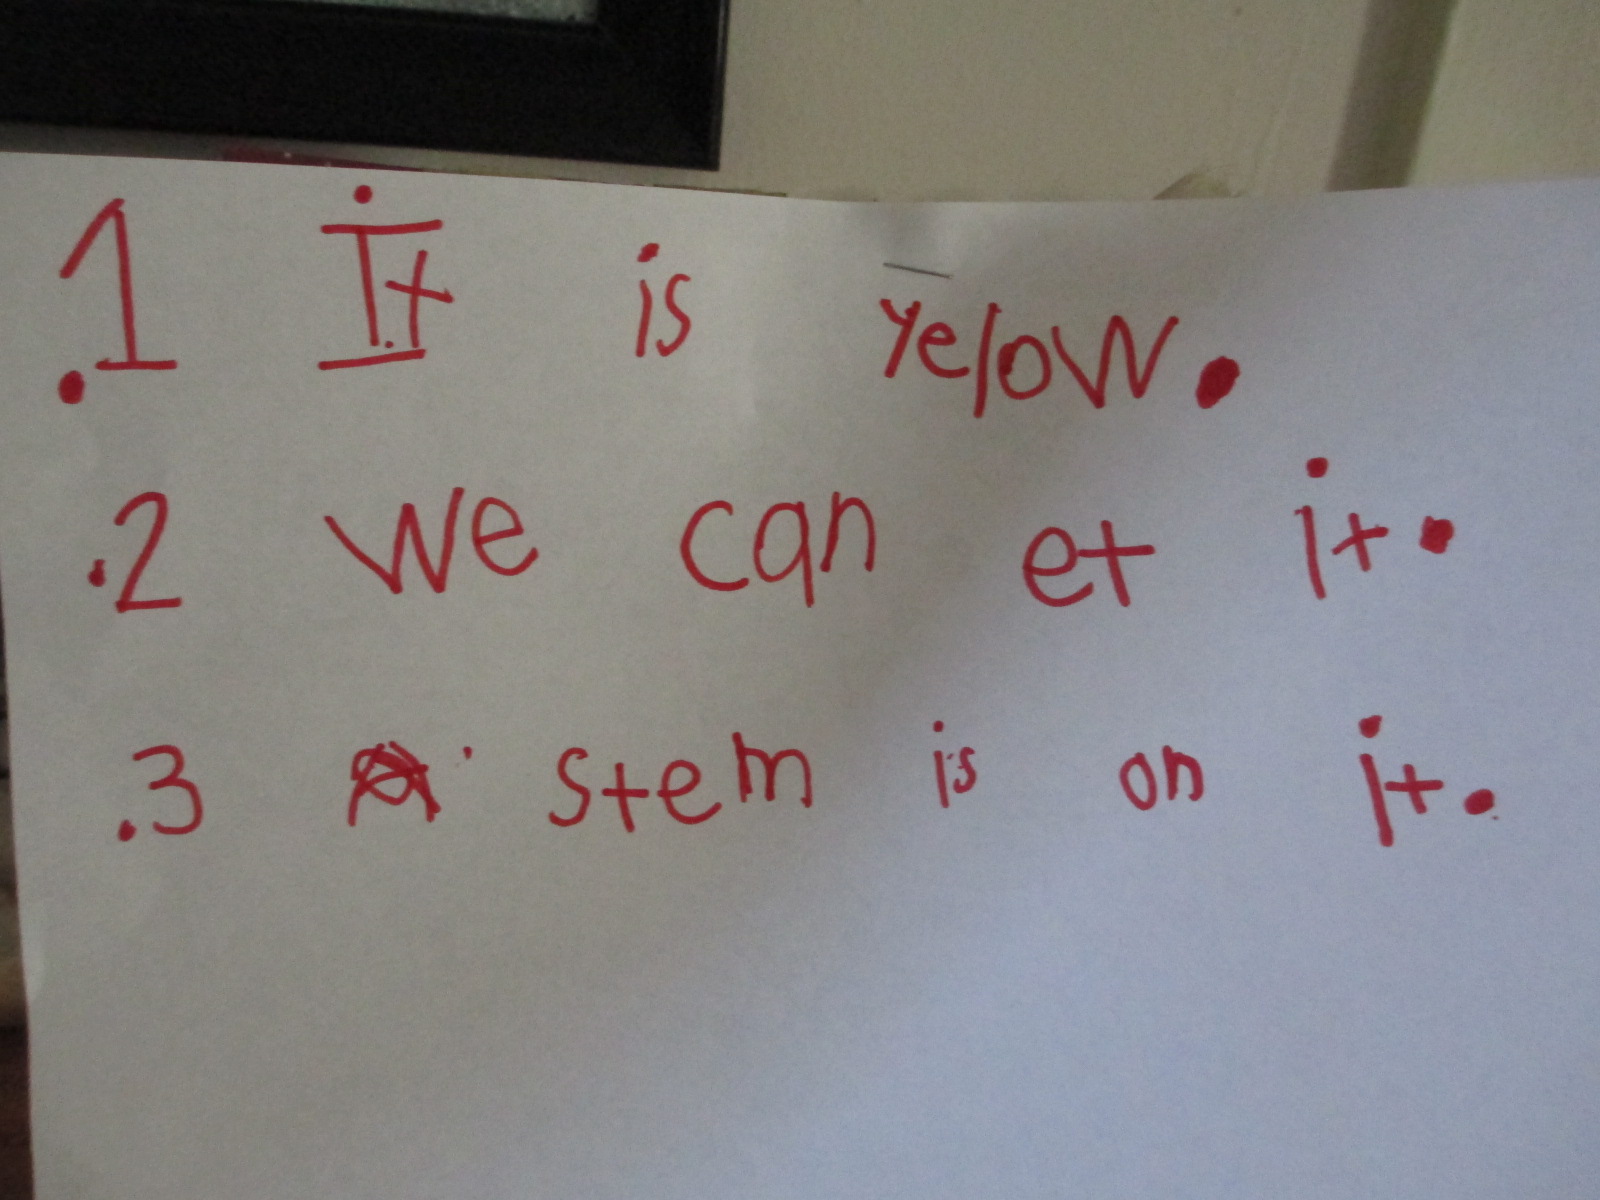 .1 It is yelow.
.2 we can et it.
.3 A stem is on it.